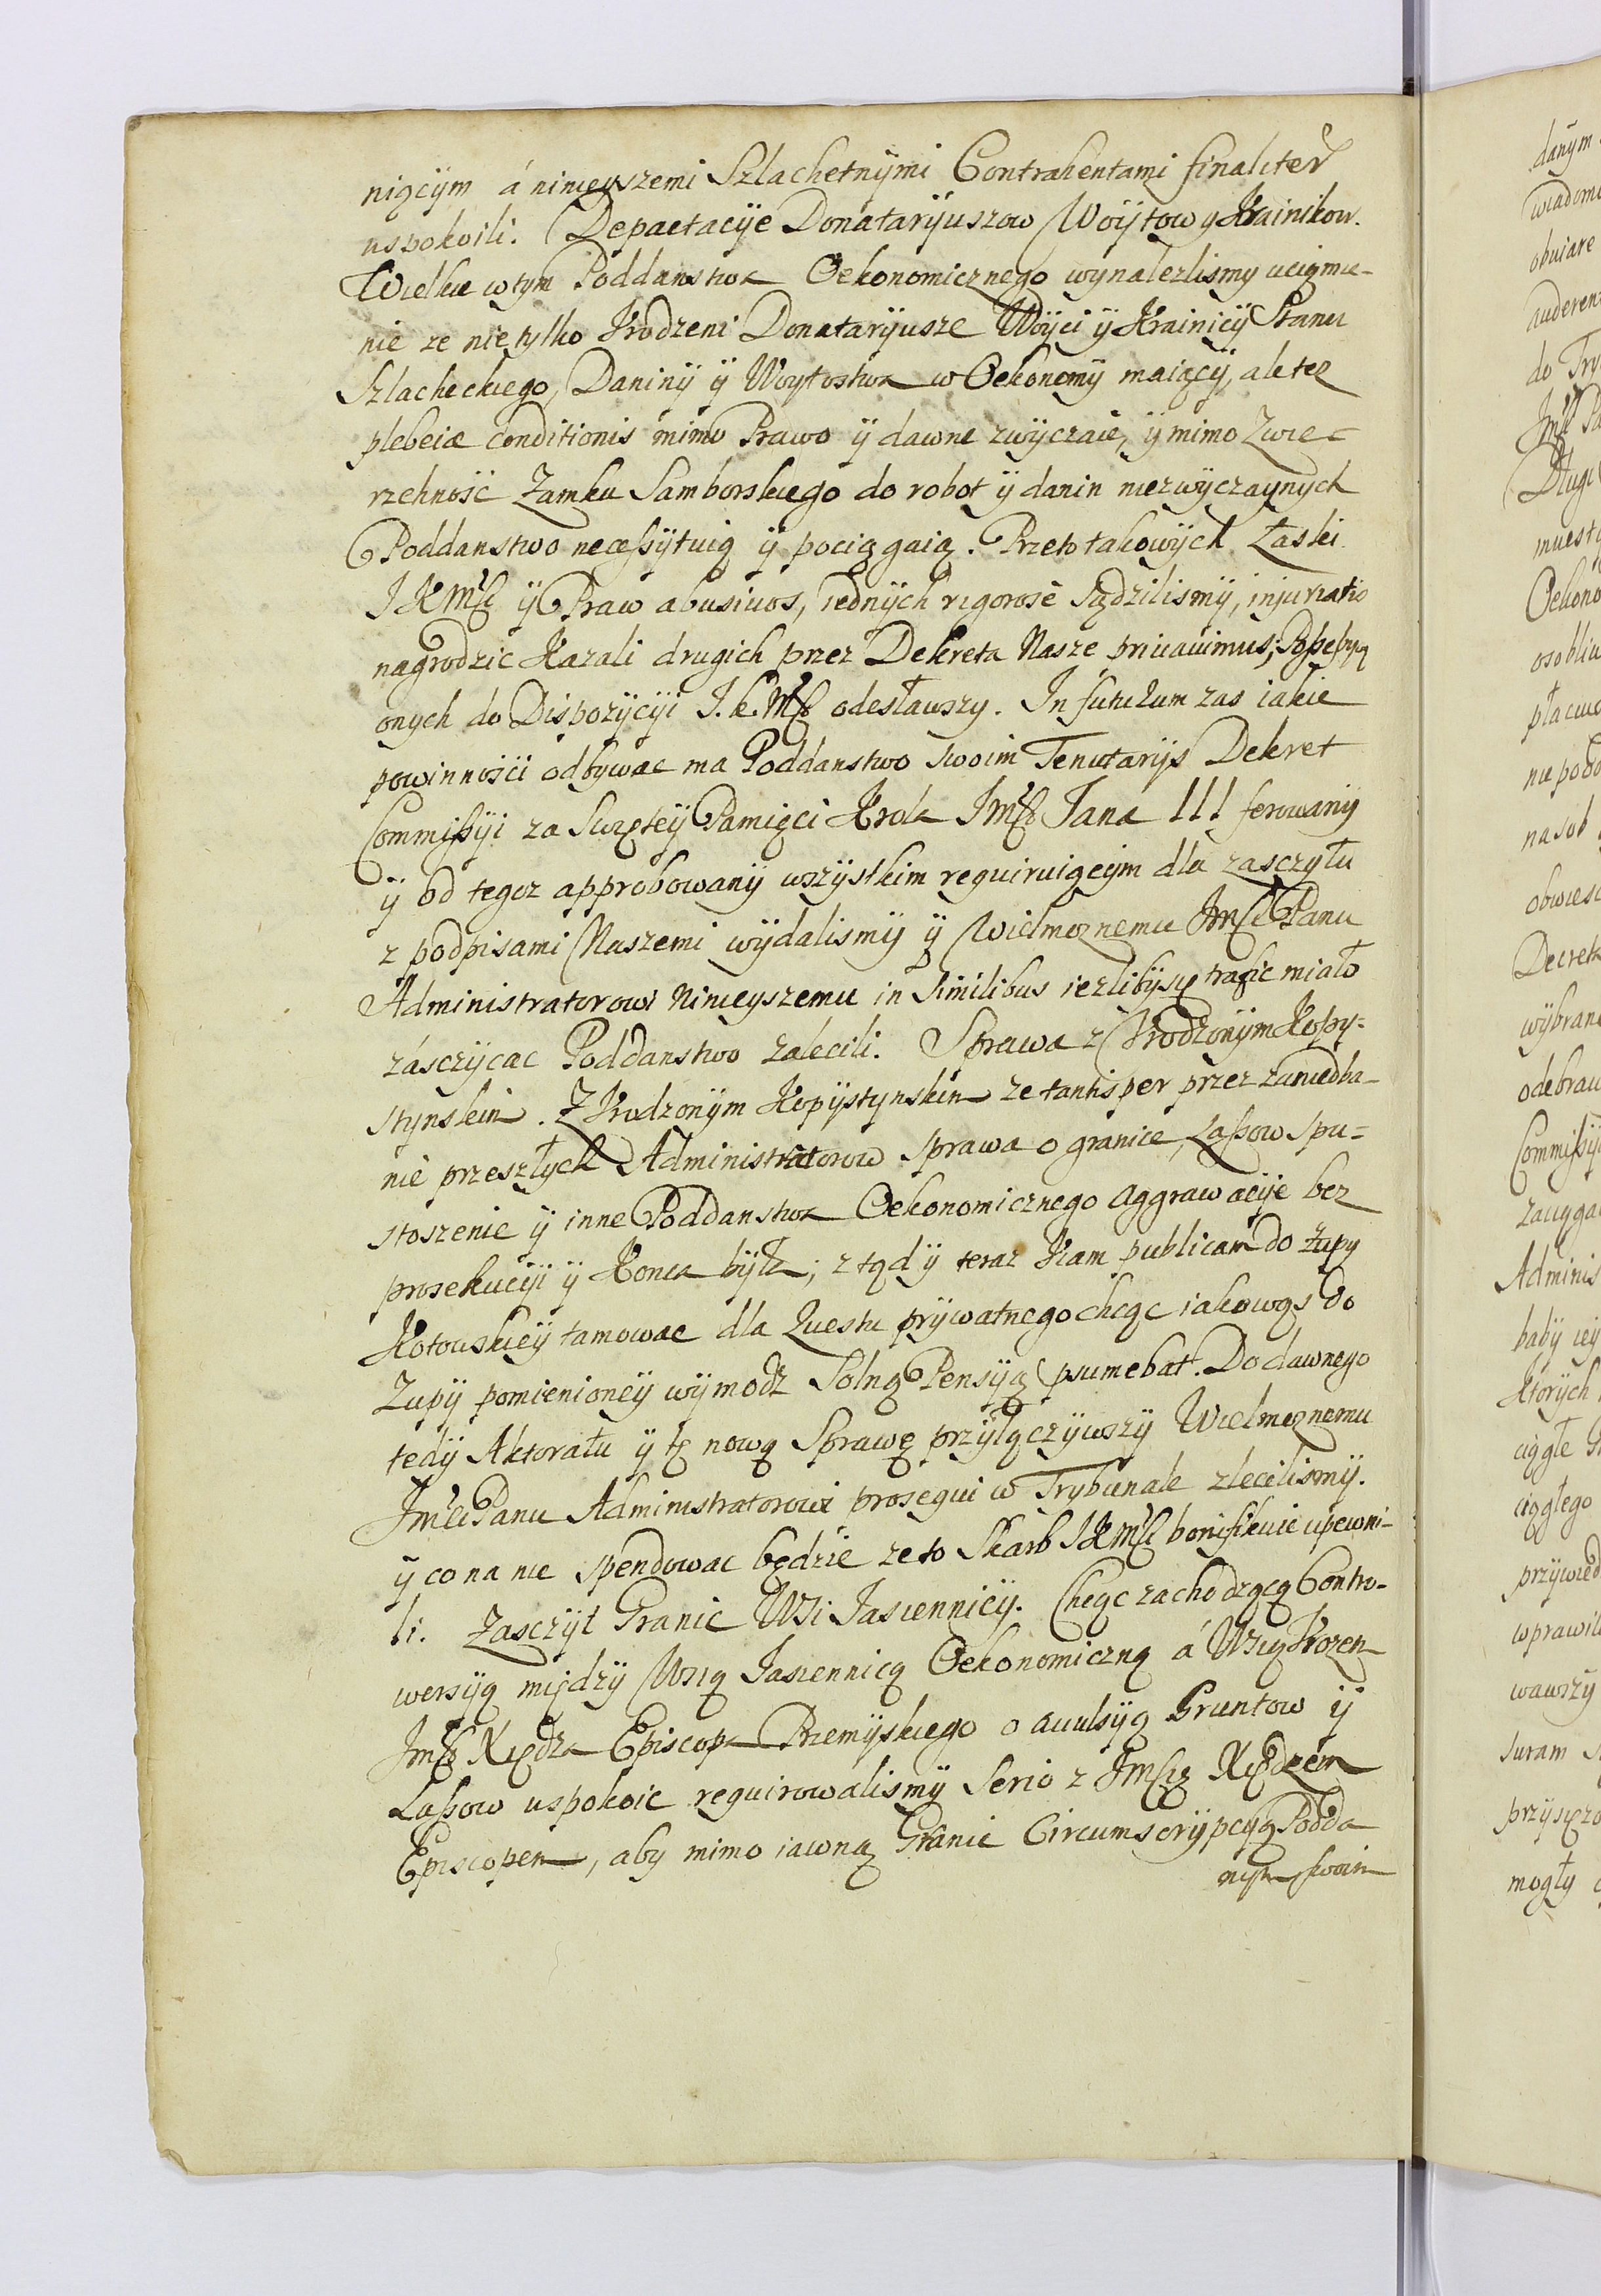 niącÿm á ninieyszemi Szlachetnÿmi Contrahentami finaliter
uspokoili. Depactacÿe Donatarÿuszow Woÿtow y Krainikow.
Wielkie w tym Poddanstwa Oekonomicznego wynalezlismy uciąmie-
nie ze nie tylko Urodzeni Donatarÿusze Woÿci ÿ Krainicÿ Stanu
Szlacheckiego, Daninÿ ÿ Woytostwa w Oekonomÿ maiącÿ, ale tez
plebeiæ conditionis mimo Prawo ÿ dawne zwÿczaie, ÿ mimo Zwie-
rzchność Zamku Samborskiego do robot ÿ danin niezwÿczaynych
Poddanstwo necessÿtuią ÿ pociągaią. Przeto takowÿch Łaski
J K Mśći ÿ Praw abusivos, iednÿch rigorosè sądzilismÿ, injuriatis
nagrodzic Kazali drugich przez Dekreta Nasze privavimus; Possessÿą
onych do Dispozÿcÿi J. K. Mśći odesławszy. In futurum zas iakie
powinnośći odbywac ma Poddanstwo swoim Tenutarÿs Dekret
Commissÿi za Swięteÿ Pamięci Krola Jmśći Jana III ferowanÿ
ÿ od tegoz approbowanÿ wszÿstkim requiruiącÿm dla zasczÿtu
z podpisami Naszemi wÿdalismÿ ÿ Wielmoznemu Jmści Panu
Administratorowi Ninieyszemu in Similibus iezlibÿ się trafic miało
zásczÿcac Poddanstwo zalecili. Sprawa z Urodzonÿm Kopy-
stynskim. Z Urodzonÿm Kopÿstynskim ze tantisper przez zaniedba-
nie przeszłych Administratorow Sprawa o granice, Lassow spu-
stoszenie ÿ inne Poddanstwa Oekonomicznego aggrawacÿe bez
prosekucÿi ÿ Konca bÿła; z tąd ÿ teraz Viam publicam do Zupy
Kotowskieÿ tamowac dla Questu prÿwatnego chcąc iakowąs do
Zupÿ pomienioneÿ wÿmodz Solną Pensÿą praesumebat. Do dawnego
tedÿ Aktoratu ÿ tę nową Sprawę przÿłączÿwszÿ Wielmoznemu
Jmści Panu Administratorowi prosequi w Trybunale zlecilismÿ.
ÿ co na nie spendowac będzie ze to Skarb J K Mści bonifikuie upewni-
li. Zasczÿt Granic Wsi Jasiennicÿ. Chcąc zachodzącą Contro-
wersÿą międzÿ Wsią Jasiennicą Oekonomiczną á Wsią Rozen
Jmśći Xiędza Episcopa Przemÿskiego o avulsÿą Gruntow ÿ
Lassow uspokoic requirowalismÿ serio z Jmścią Xiędzem
Episcopem, aby mimo iawną Granic Circumscrÿpcyą Podda
nym swoim